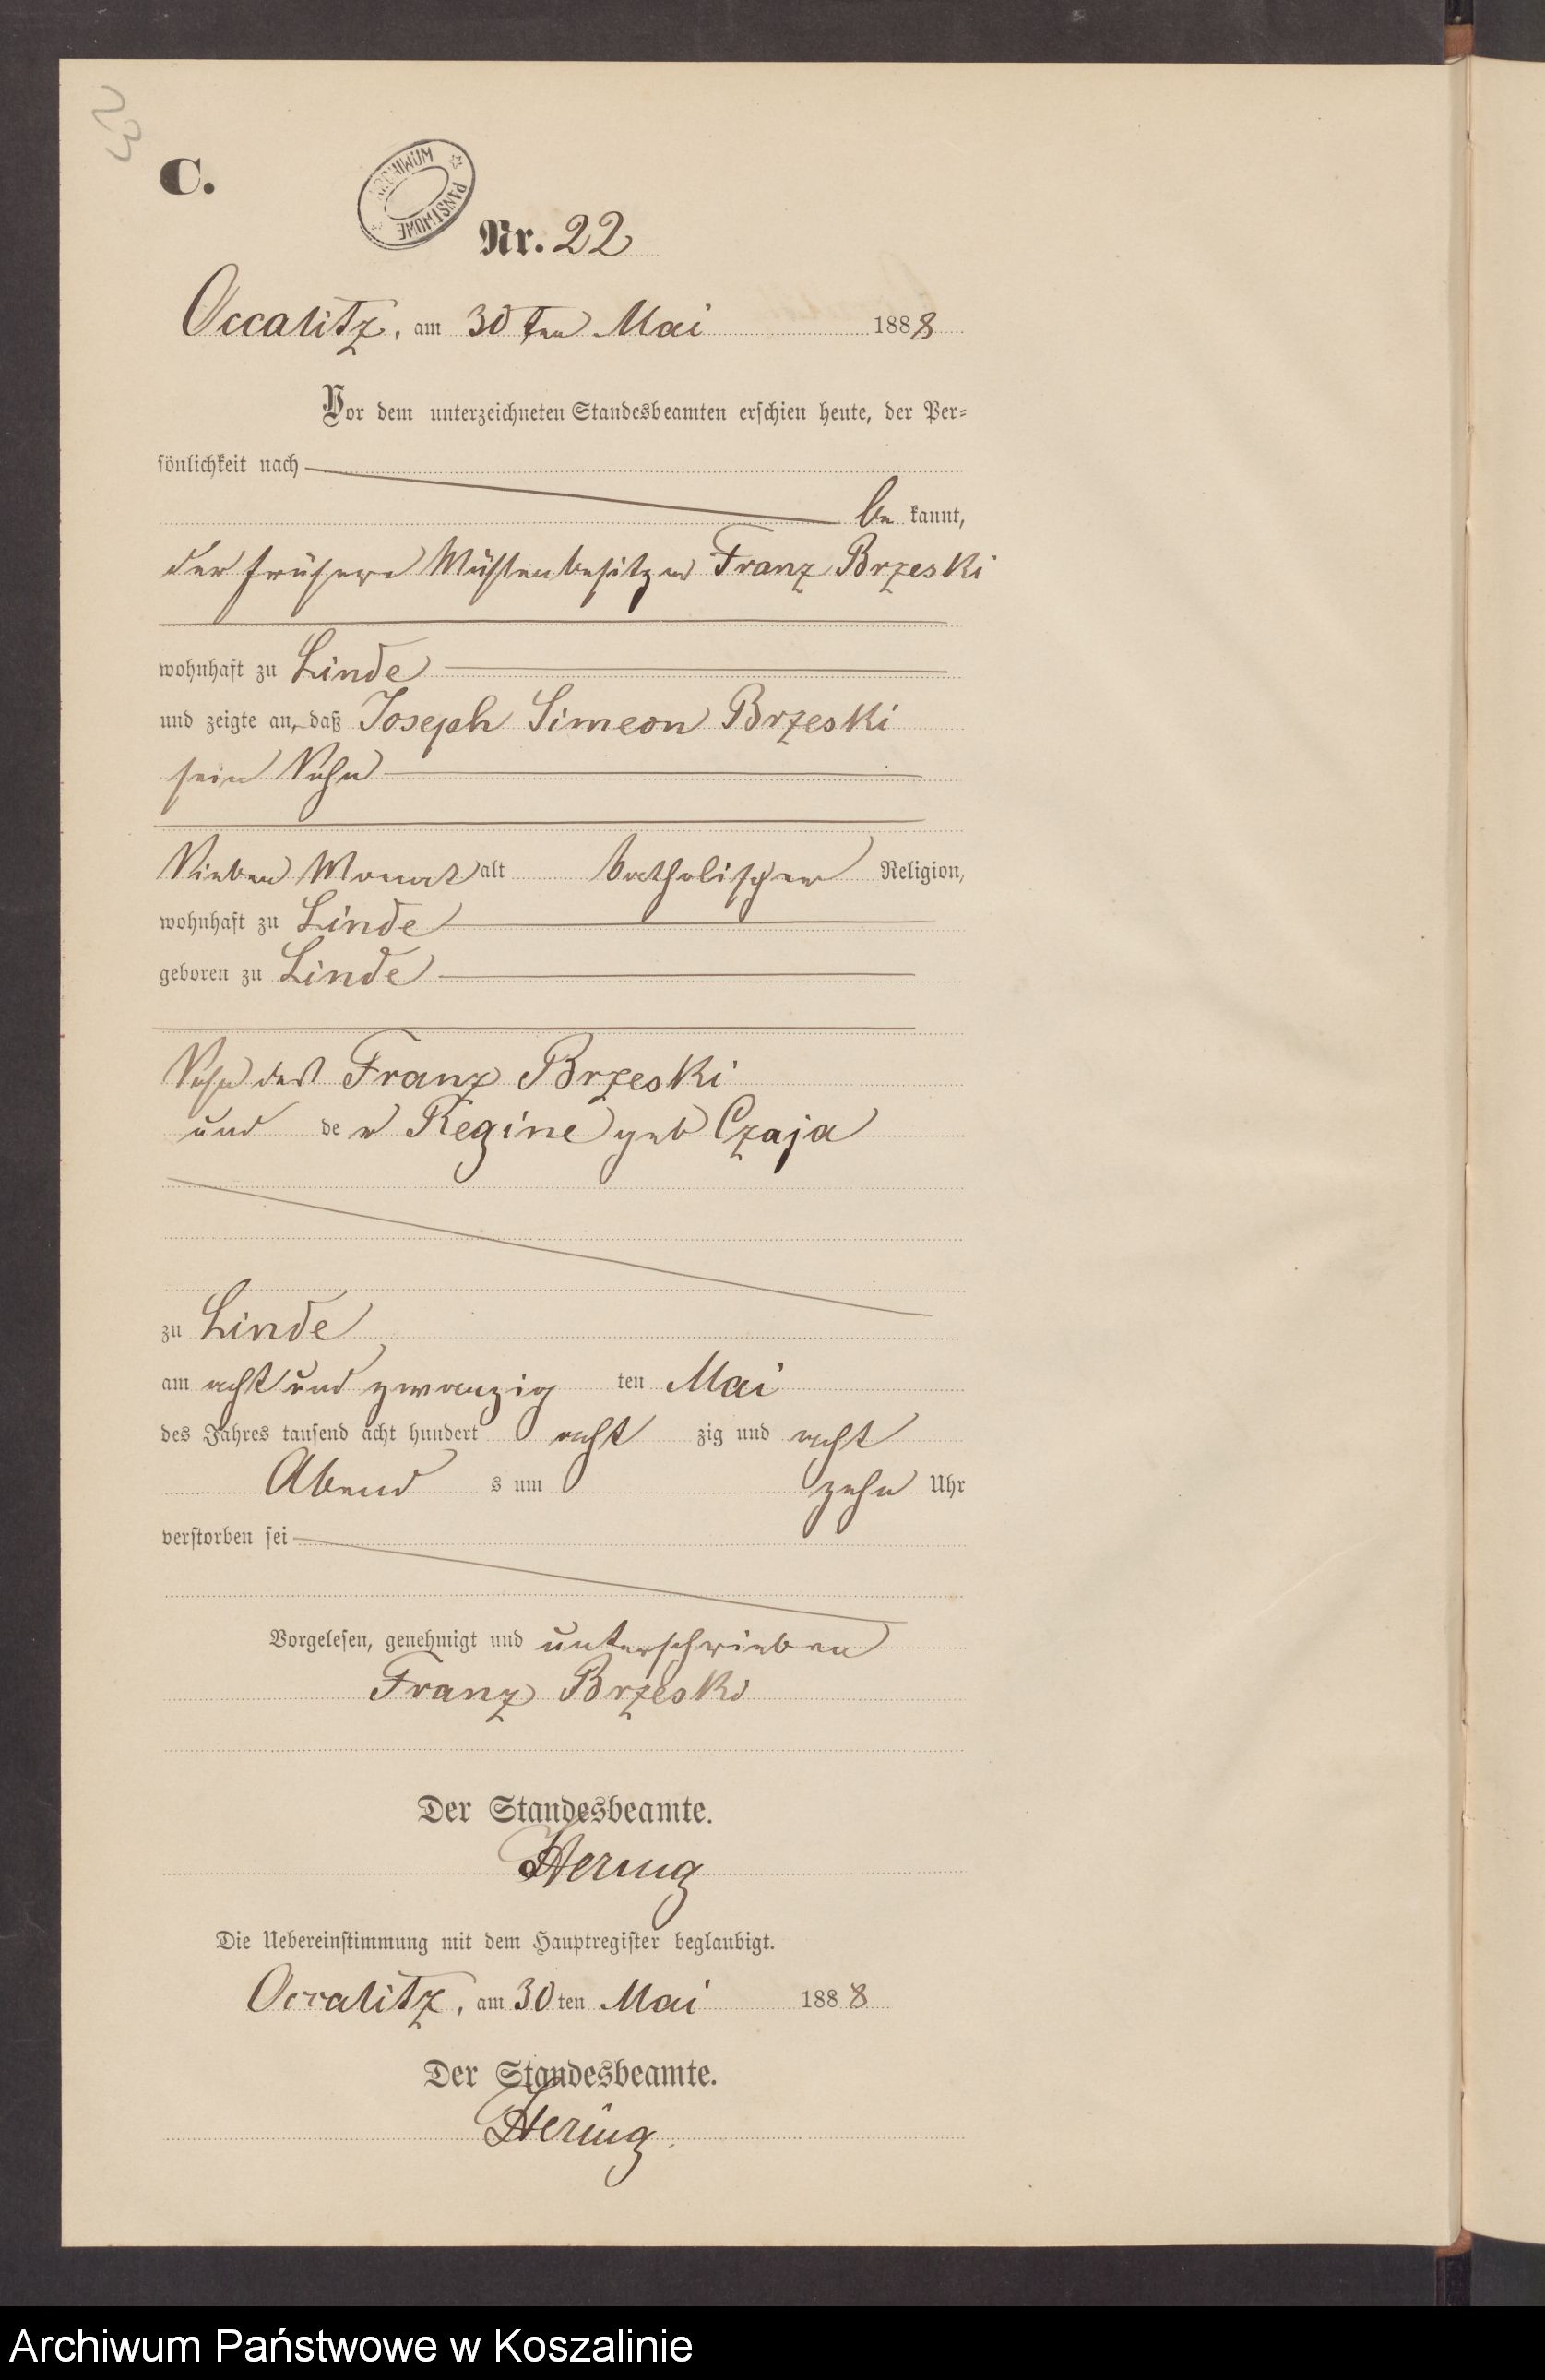 23
C.
ARCHIWUM PAŃSTWOWE
Nr. 22
Occalitz, am 30ten Mai 1888
Vor dem unterzeichneten Standesbeamten erschien heute, der Per-
sönlichkeit nach
be kannt,
der frühere Mühlenbesitzer Franz Brzeski
wohnhaft zu Linde
und zeigte an, daß Joseph Simeon Brzeski
sein Sohn
Sieben Monat alt katholischer Religion,
wohnhaft zu Linde
geboren zu Linde
Sohn des Franz Brzeski
und der Regine geb Czaja
zu Linde
am acht und zwanzig ten Mai
des Jahres tausend acht hundert acht zig und acht
Abend s um zehn Uhr
verstorben sei
Vorgelesen, genehmigt und unterschrieben
Franz Brzeski
Der Standesbeamte.
Hering
Die Uebereinstimmung mit dem Hauptregister beglaubigt.
Occalitz, am 30 ten Mai 1888
Der Standesbeamte.
Hering.
Archiwum Państwowe w Koszalinie